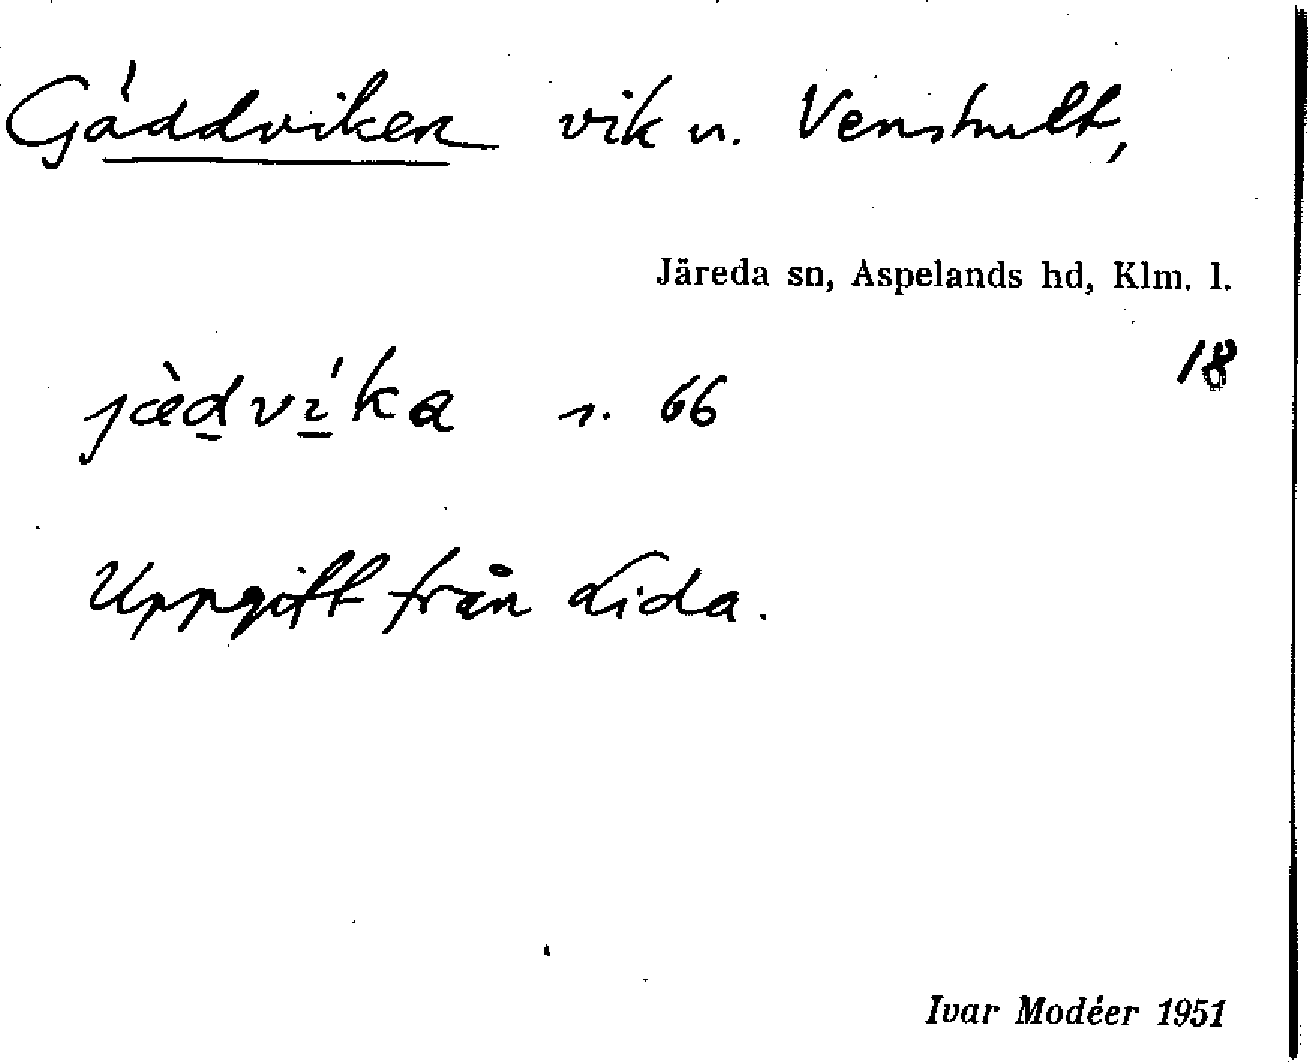 Gäddviken vik n. Venshult,
Järeda sn, Aspelands hd, Klm. l.
18
jàdví̱ka n. 66
Uppgift från Lida.
Ivar Modéer 1951